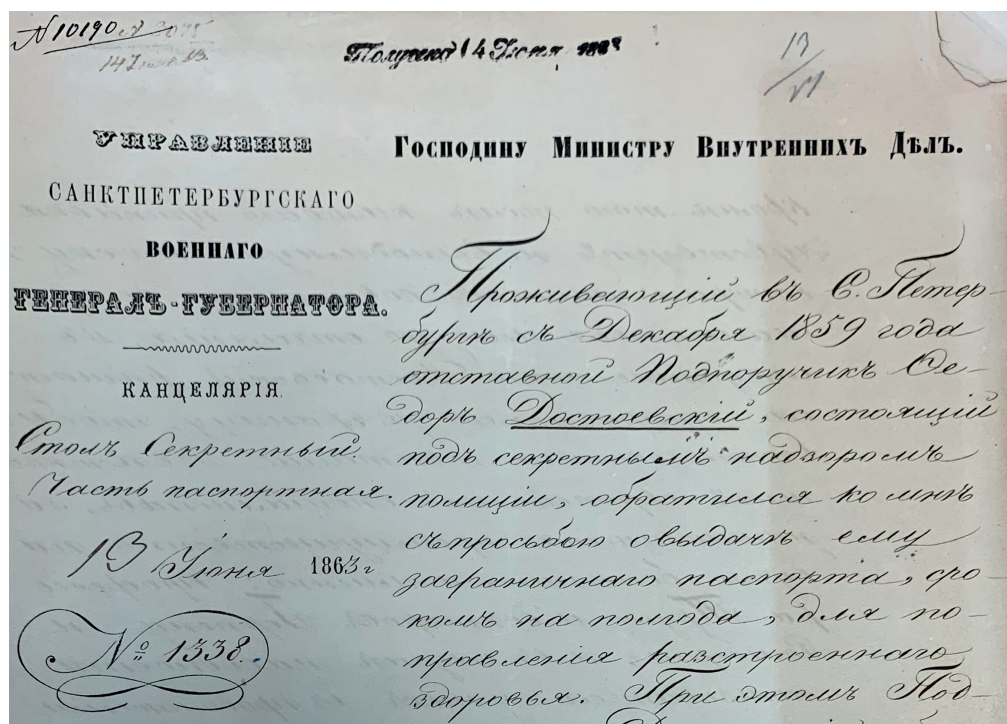 N 10190
Получена 14 Июня
13
VI
УПРАВЛЕНІЕ
САНКТПЕТЕРБУРГСКАГО
ВОЕННАГО
ГЕНЕРАЛЪ-ГУБЕРНАТОРА.
КАНЦЕЛЯРІЯ.
Столъ Секретный.
Часть паспортная.
13 Іюня 1863 г
№ 1338.
Господину Министру Внутреннихъ Дѣлъ.
Проживающій въ С. Петер-
бургѣ съ Декабря 1859 года
отставной Подпоручикъ Ѳе-
доръ Достоевскій, состоящій
подъ секретнымъ надзоромъ
полиціи, обратился ко мнѣ
съ просьбою о выдачѣ ему
заграничнаго паспорта, сро-
комъ на полгода, для по-
правленія разстроеннаго
здоровья. При этомъ Под-